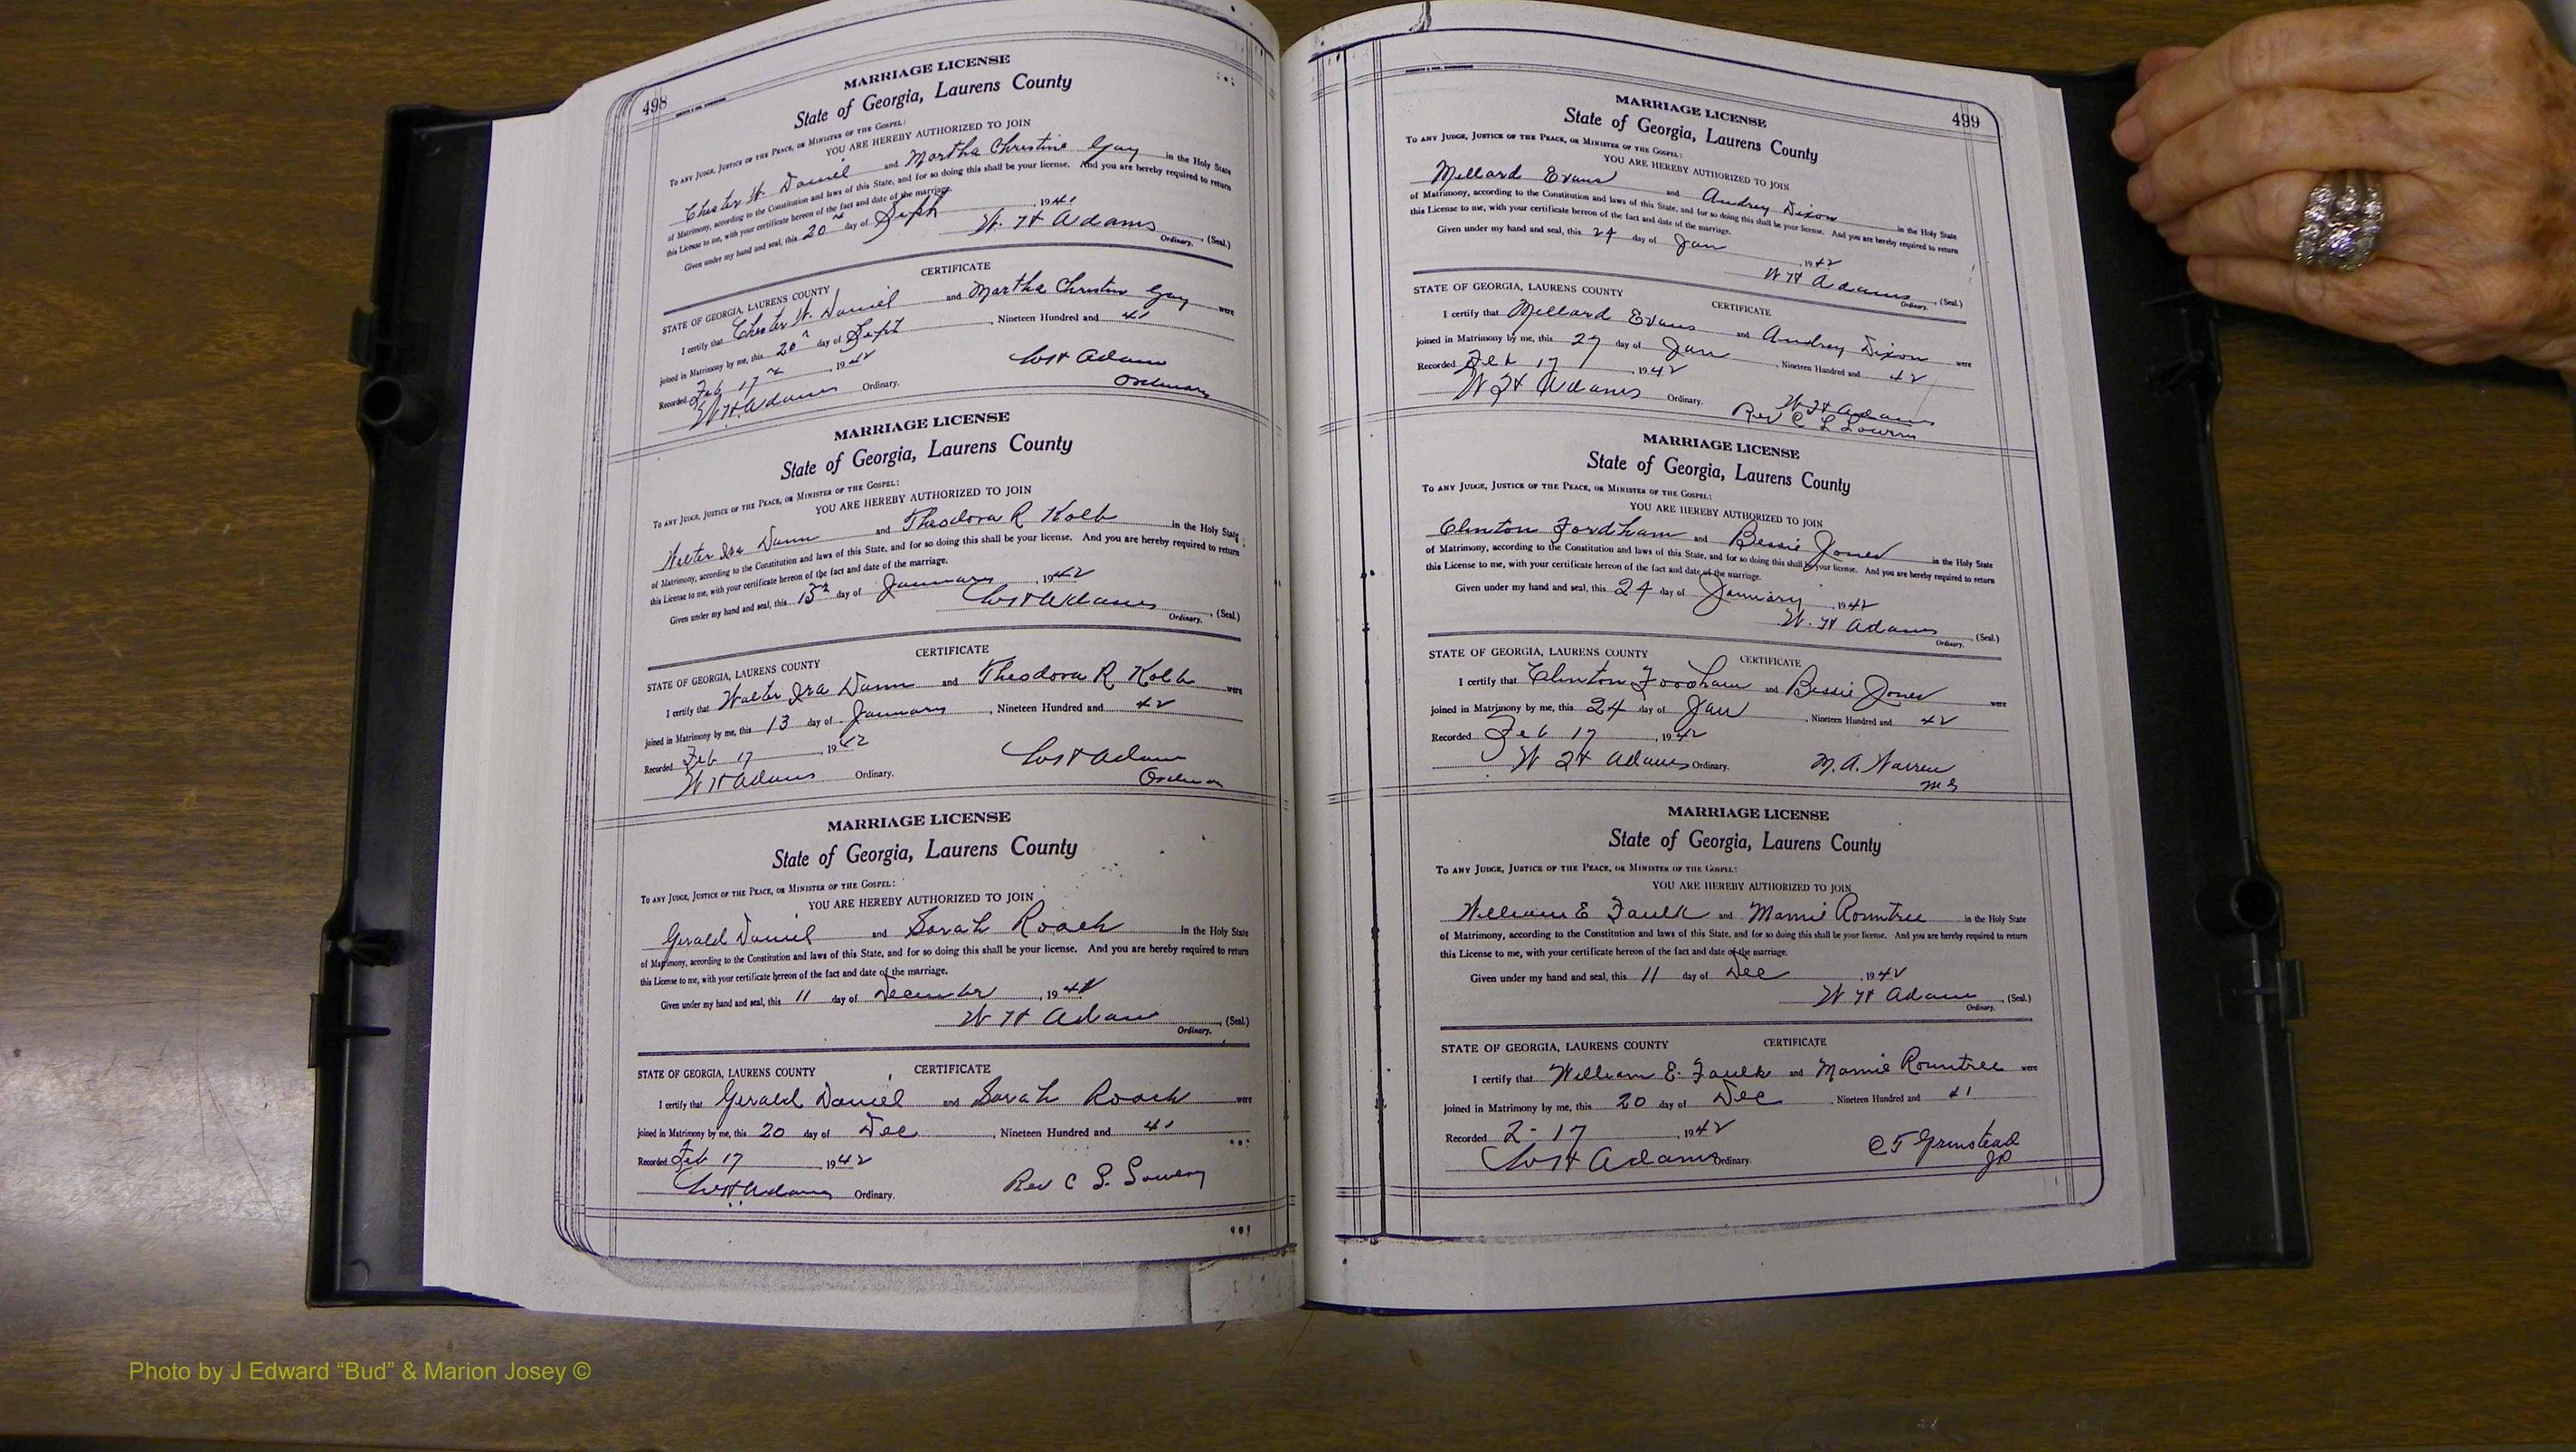 498
MARRIAGE LICENSE
State of Georgia, Laurens County
To any Judge, Justice of the Peace, or Minister of the Gospel:
YOU ARE HEREBY AUTHORIZED TO JOIN
Chester W. Daniel and Martha Christine Gay in the Holy State
of Matrimony, according to the Constitution and laws of this State, and for so doing this shall be your license. And you are hereby required to return
this License to me, with your certificate hereon of the fact and date of the marriage.
Given under my hand and seal, this 20 day of Sept, 1941
W. H Adams, (Seal.)
Ordinary.
CERTIFICATE
STATE OF GEORGIA, LAURENS COUNTY
I certify that Chester W. Daniel and Martha Christin Gay were
joined in Matrimony by me, this 20 day of Sept, Nineteen Hundred and 41
Recorded Feb 17, 1942
W H Adams Ordinary. W H Adams
Ordinary
MARRIAGE LICENSE
State of Georgia, Laurens County
To any Judge, Justice of the Peace, or Minister of the Gospel:
YOU ARE HEREBY AUTHORIZED TO JOIN
Walter Ira Dunn and Theodora R Kolb in the Holy State
of Matrimony, according to the Constitution and laws of this State, and for so doing this shall be your license. And you are hereby required to return
this License to me, with your certificate hereon of the fact and date of the marriage.
Given under my hand and seal, this day of January, 1942
W H Adams, (Seal.)
Ordinary.
CERTIFICATE
STATE OF GEORGIA, LAURENS COUNTY
I certify that Walter Ira Dunn and Theodora R Kolb were
joined in Matrimony by me, this 13 day of January, Nineteen Hundred and 42
Recorded Feb 17, 1942
W H Adams Ordinary. W H Adams
MARRIAGE LICENSE
State of Georgia, Laurens County
To any Judge, Justice of the Peace, or Minister of the Gospel:
YOU ARE HEREBY AUTHORIZED TO JOIN
Gerald Daniel and Sarah Roach in the Holy State
of Matrimony, according to the Constitution and laws of this State, and for so doing this shall be your license. And you are hereby required to return
this License to me, with your certificate hereon of the fact and date of the marriage.
Given under my hand and seal, this 11 day of December, 19
W H Adams, (Seal.)
Ordinary.
STATE OF GEORGIA, LAURENS COUNTY CERTIFICATE
I certify that Gerald Daniel and Sarah Roach were
joined in Matrimony by me, this 20 day of Dec, Nineteen Hundred and 41
Recorded Feb 17, 1942
W H Adams Ordinary. Rev C L Lowery
499
MARRIAGE LICENSE
State of Georgia, Laurens County
To any Judge, Justice of the Peace, or Minister of the Gospel:
YOU ARE HEREBY AUTHORIZED TO JOIN
Millard Evans and Audrey Dixon in the Holy State
of Matrimony, according to the Constitution and laws of this State, and for so doing this shall be your license. And you are hereby required to return
this License to me, with your certificate hereon of the fact and date of the marriage.
Given under my hand and seal, this 24 day of Jan, 1942
W H Adams, (Seal.)
Ordinary.
STATE OF GEORGIA, LAURENS COUNTY CERTIFICATE
I certify that Millard Evans and Audrey Dixon were
joined in Matrimony by me, this 27 day of Jan, Nineteen Hundred and 42
Recorded Feb 17, 1942
W H Adams Ordinary. W H Adams
Rev C L Lowery
MARRIAGE LICENSE
State of Georgia, Laurens County
To any Judge, Justice of the Peace, or Minister of the Gospel:
YOU ARE HEREBY AUTHORIZED TO JOIN
Clinton Fordham and Bessie Jones in the Holy State
of Matrimony, according to the Constitution and laws of this State, and for so doing this shall be your license. And you are hereby required to return
this License to me, with your certificate hereon of the fact and date of the marriage.
Given under my hand and seal, this 24 day of January, 1942
W. H Adams, (Seal.)
Ordinary.
STATE OF GEORGIA, LAURENS COUNTY CERTIFICATE
I certify that Clinton Fordham and Bessie Jones were
joined in Matrimony by me, this 24 day of Jan, Nineteen Hundred and 42
Recorded Feb 17, 1942
W H Adams Ordinary. M. A. Warren
MG
MARRIAGE LICENSE
State of Georgia, Laurens County
To any Judge, Justice of the Peace, or Minister of the Gospel:
YOU ARE HEREBY AUTHORIZED TO JOIN
William E Faulk and Mamie Rountree in the Holy State
of Matrimony, according to the Constitution and laws of this State, and for so doing this shall be your license. And you are hereby required to return
this License to me, with your certificate hereon of the fact and date of the marriage.
Given under my hand and seal, this 11 day of Dec, 1942
W H Adams, (Seal.)
Ordinary.
STATE OF GEORGIA, LAURENS COUNTY CERTIFICATE
I certify that William E. Faulk and Mamie Rountree were
joined in Matrimony by me, this 20 day of Dec, Nineteen Hundred and 41
Recorded 2-17, 1942
W H Adams Ordinary. C T Grinstead
JP
Photo by J Edward “Bud” & Marion Josey ©